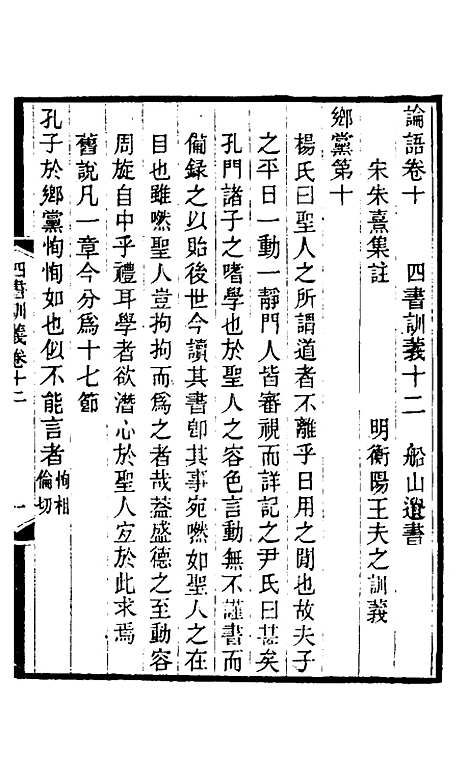 論語卷十　四書訓義十二　船山遺書
宋朱熹集註　明衡陽王夫之訓義
鄉黨第十
楊氏曰聖人之所謂道者不離乎日用之閒也故夫子
之平日一動一靜門人皆審視而詳記之尹氏曰甚矣
孔門諸子之嗜學也於聖人之容色言動無不謹書而
僃錄之以貽後世今讀其書卽其事宛然如聖人之在
目也雖然聖人豈拘拘而爲之者哉蓋盛德之至動容
周旋自中乎禮耳學者欲潛心於聖人宐於此求焉
舊說凡一章今分爲十七節
孔子於鄉黨恂恂如也似不能言者恂相倫切
四書訓義卷十二　一